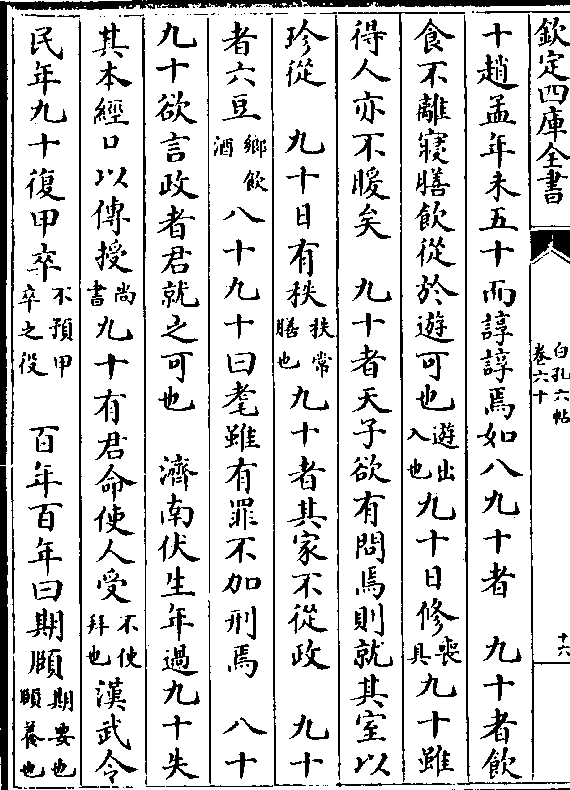 欽定四庫全書
白孔六帖
卷六十
十六
十趙孟年未五十而諄諄焉如八九十者　九十者飲
食不離寢膳飲從於遊可也遊出入也九十日修喪具九十雖
得人亦不暖矣　九十者天子欲有問焉則就其室以
珍從　九十日有秩秩常膳也九十者其家不從政　九十
者六豆鄉飲酒八十九十曰耄雖有罪不加刑焉　八十
九十欲言政者君就之可也　濟南伏生年過九十失
其本經口以傳授尚書九十有君命使人受不使拜也漢武令
民年九十復甲卒不預甲卒之役　百年百年曰期頤期要也頤養也